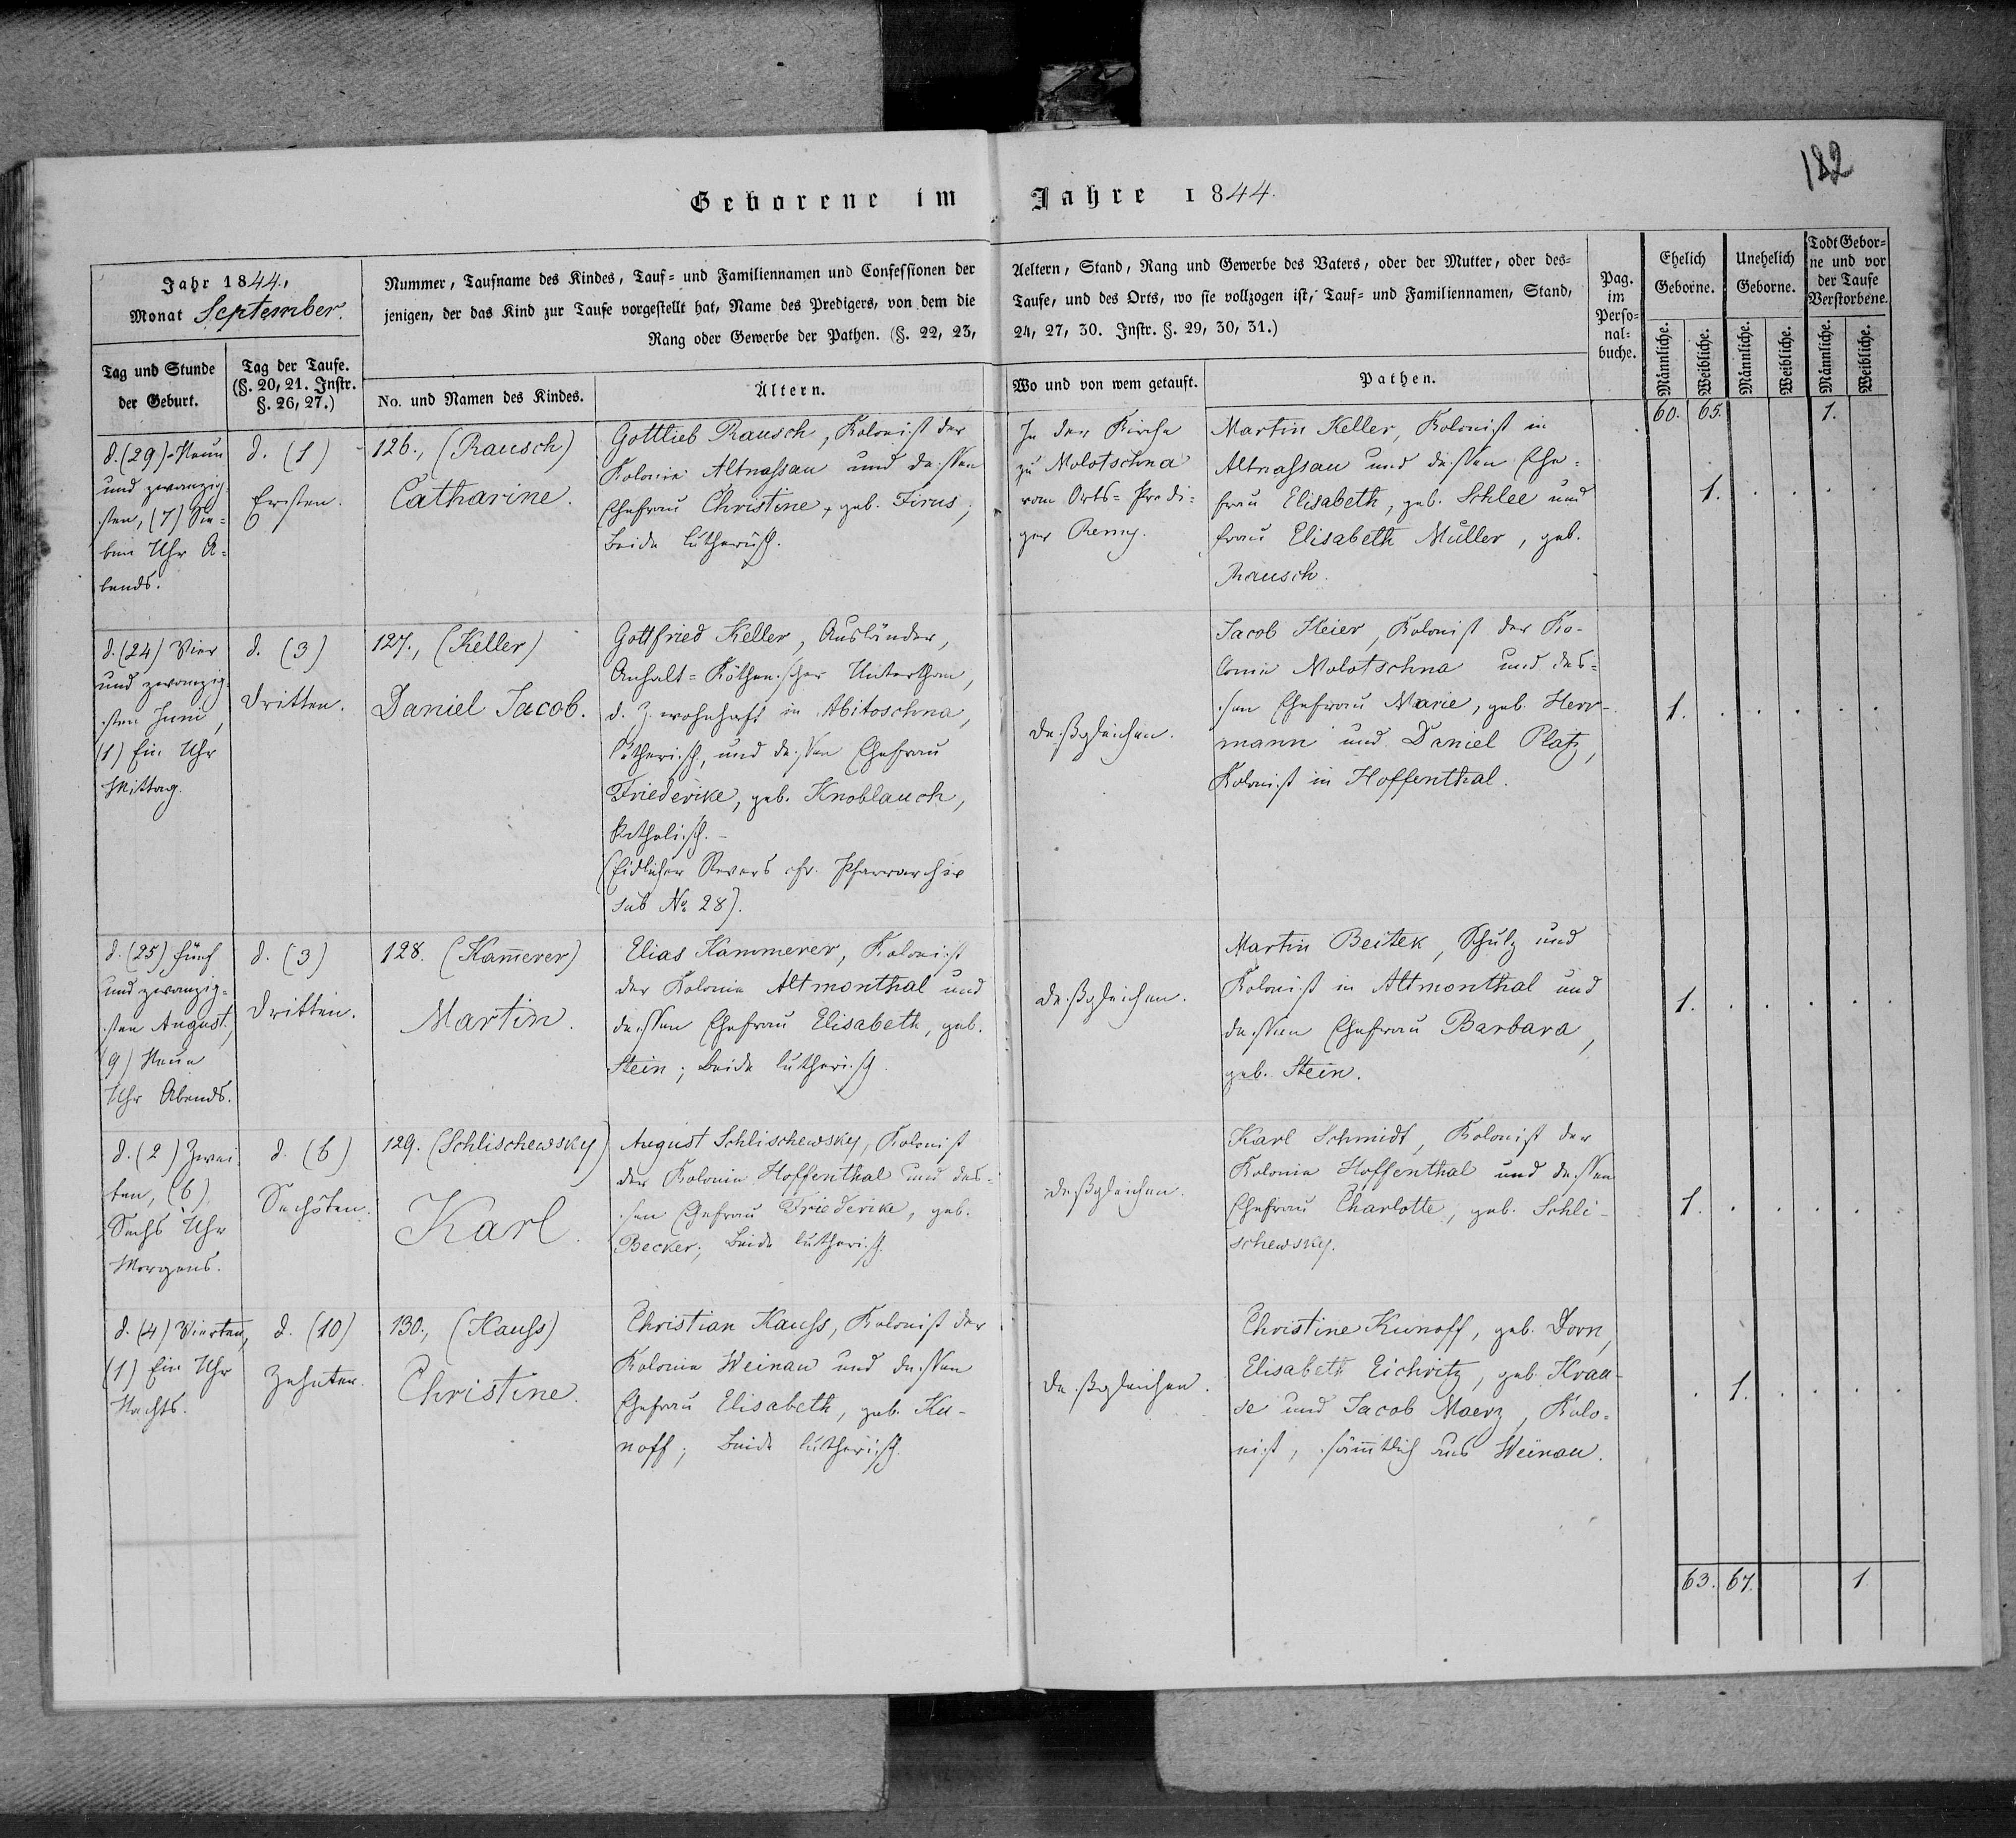 182
Geborene im Jahre 1844.
Jahr 1844.,
Monat September.
Nummer, Taufname des Kindes, Tauf- und Familiennamen und Confessionen der Aeltern, Stand, Rang und Gewerbe des Vaters, oder der Mutter, oder des-
jenigen, der das Kind zur Taufe vorgestellt hat, Name des Predigers, von dem die Taufe, und des Orts, wo sie vollzogen ist, Tauf- und Familiennamen, Stand,
Rang oder Gewerbe der Pathen. (§. 22, 23, 24, 27, 30. Instr. §. 29, 30, 31.)
Pag.
im
Perso-
nal-
buche.
Ehelich
Geborne.
Unehelich
Geborne.
Todt Gebor-
ne und vor
der Taufe
Verstorbene.
Tag und Stunde
der Geburt.
Tag der Taufe.
(§. 20, 21. Instr.
§. 26, 27.)
No. und Namen des Kindes.
Ältern.
Wo und von wem getauft.
Pathen.
Männliche.
Weibliche.
Männliche.
Weibliche.
Männliche.
Weibliche.
60. 65. 1.
d. (29)-Neun
und zwanzig-
sten, (7) Sie-
ben Uhr A-
bends.
d. (1)
Ersten.
126., (Rausch)
Catharine.
Gottlieb Rausch, Kolonist der
Kolonie Altnassau und dessen
Ehefrau Christine, geb. Firus;
Beide lutherisch.
In der Kirche
zu Molotschna
vom Orts-Predi-
ger Remy.
Martin Keller, Kolonist in
Altnassau und dessen Ehe-
frau Elisabeth, geb. Schlee und
Frau Elisabeth Müller, geb.
Rausch.
1.
d. (24) Vier
und zwanzig-
sten Juni,
(1) Ein Uhr
Mittag.
d. (3)
Dritten.
127., (Keller)
Daniel Jacob.
Gottfried Keller, Ausländer,
Anhalt-Köthenscher Unterthan,
d. Z. wohnhaft in Abitoschna,
lutherisch, und dessen Ehefrau
Friederike, geb. Knoblauch,
katholisch.-
(Eidlicher Revers cfr. Pfarrarchiv
sub No. 28).
deßgleichen.
Jacob Heier, Kolonist der Ko-
lonie Molotschna und des-
sen Ehefrau Marie, geb. Herr-
mann und Daniel Platz,
Kolonist in Hoffenthal.
1.
d. (25) Fünf
und zwanzig-
sten August,
(9) Neun
Uhr Abends.
d. (3)
Dritten.
128. (Kam̅erer)
Martin.
Elias Kammerer, Kolonist
der Kolonie Altmonthal und
dessen Ehefrau Elisabeth, geb.
Stein; Beide lutherisch.
deßgleichen.
Martin Beitek, Schulz und
Kolonist in Altmonthal und
dessen Ehefrau Barbara,
geb. Stein.
1.
d. (2) Zwei-
ten, (6)
Sechs Uhr
Morgens.
d. (6)
Sechsten.
129. (Schlischewsky)
Karl.
August Schlischewsky, Kolonist
der Kolonie Hoffenthal und des-
sen Ehefrau Friederike, geb.
Becker; Beide lutherisch.
deßgleichen.
Karl Schmidt, Kolonist der
Kolonie Hoffenthal und dessen
Ehefrau Charlotte, geb. Schli-
schewsky.
1.
d. (4) Vierten,
(1) Ein Uhr
Nachts.
d. (10)
Zehnten.
130., (Kauss)
Christine.
Christian Kauss, Kolonist der
Kolonie Weinau und dessen
Ehefrau Elisabeth, geb. Ku-
noff; Beide lutherisch.
deßgleichen.
Christine Kunoff, geb. Dorn,
Elisabeth Eichritz, geb. Krau-
se und Jacob Maerz, Kolo-
nist, säm̅tlich aus Weinau.
1.
63. 67. 1